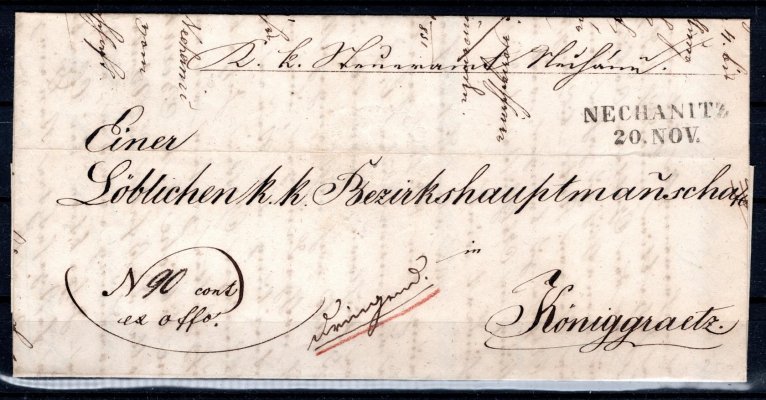 K. k. Steueramt Nechanic.
NECHANITZ
20. NOV.
Einer
Löblichen k. k. Bezirkshauptmañschaft
in
Königgraetz.
N 90 cont
ex offo.
dringend.